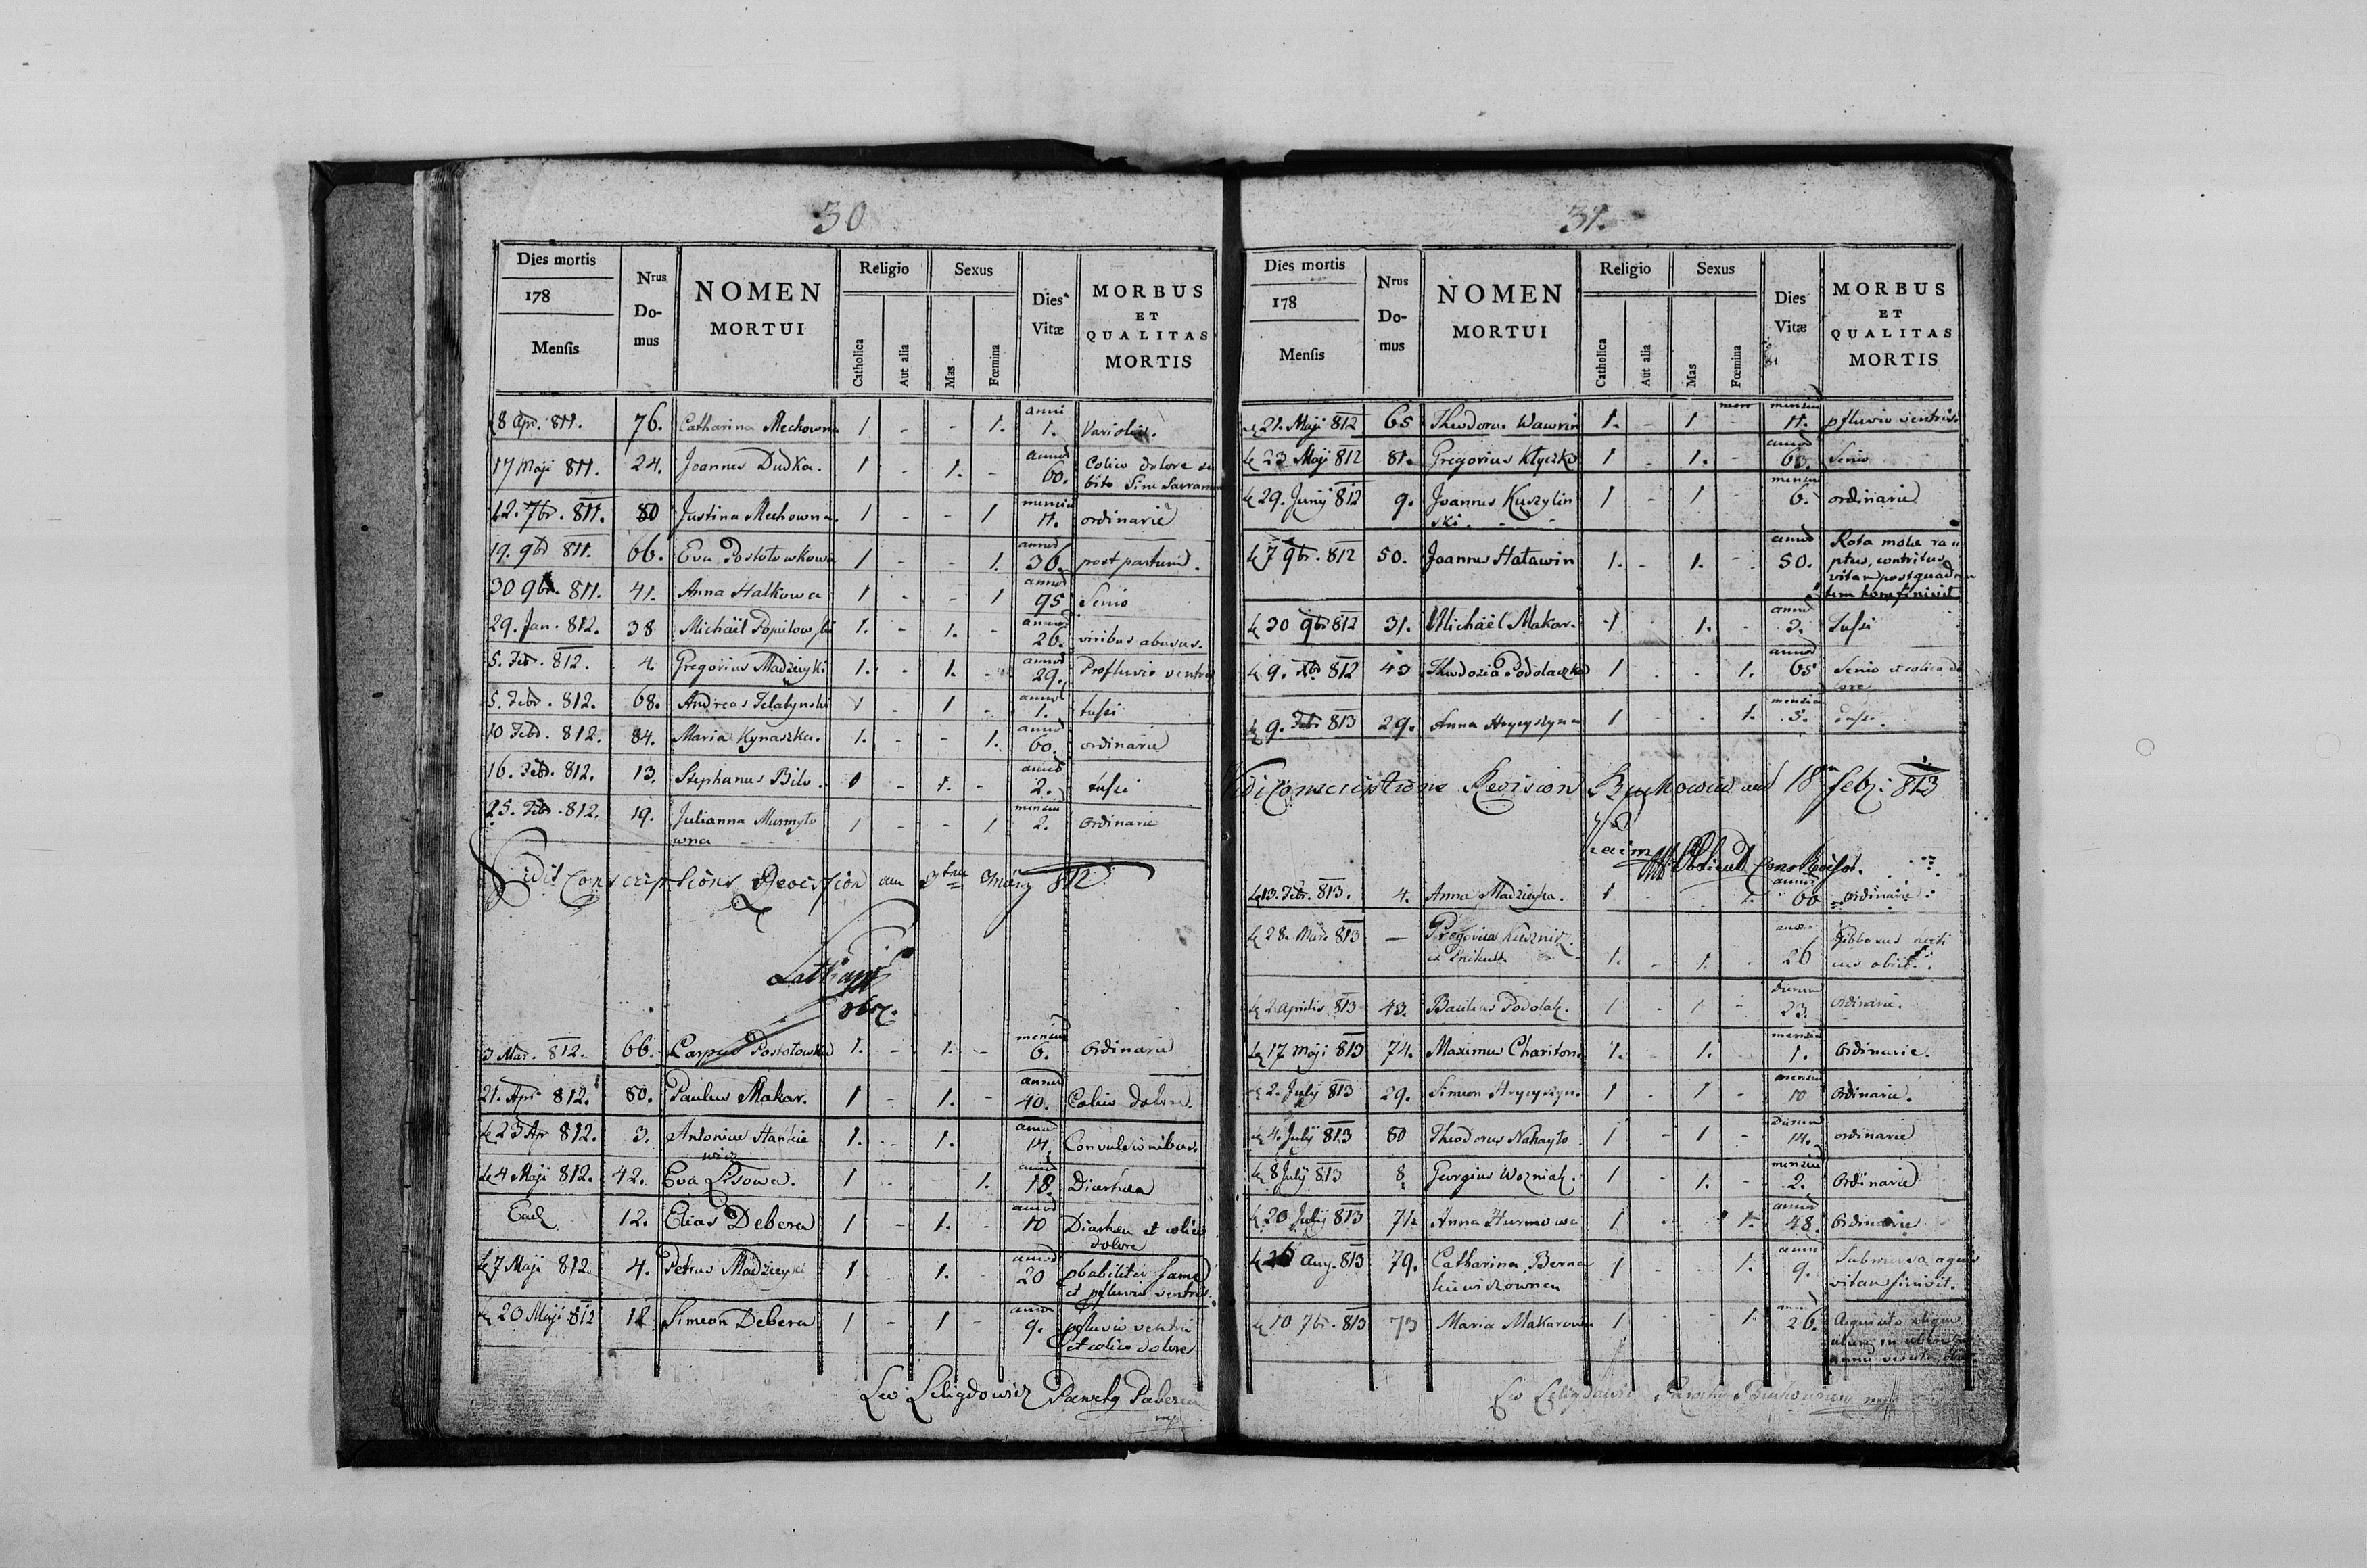 30
Dies mortis
178
Mensis
Nrus Domus
NOMEN MORTUI
Religio
Catholica
Aut alia
Sexus
Mas
Fœmina
Dies Vitæ
MORBUS ET QUALITAS MORTIS
18 Apr. 811. 76. Catharina Mechowna 1 - - 1. anni 1. Variolis.
17 Maji 811. 24. Joannes Dudka. 1 - 1. - annor 60. Colico dolore su
bito Sine Sacram
12. 7br. 811. 80 Justina Mechowna. 1 - - 1 mensiu 11. ordinarie
19. 9br 811. 66. Eva Postołowkowa 1 - - 1. annor 36. post partum.
30 9br. 811. 41. Anna Hałkowa 1 - - 1 annor 95 Senio
29. Jan. 812. 38 Michaël 1. - 1. - annor 26. viribus abusus.
5. Feb. 812. 4. Gregorius Madzieyki 1. - 1. - annor 29. Profluvio ventris
5. Febr. 812. 68. Andreas Telatynski 1 - 1 - annor 1. tussi
10 Febr. 812. 84. Maria Kynaszka. 1. - - 1. annor 60. ordinarie
16. Febr. 812. 13. Stephanus Bilo. 1 - 1. - annor 2. tussi
25. Febr. 812. 19. Julianna Murmyło
wna 1 - - 1 mensiu 2. ordinarie
Vidi Conscriptions Revision am 3ten März 812
3 Mar. 812. 66. Carpus Postołowka 1. - 1. - mensiu 6. Ordinarie
21. Apr 812. 80. Paulus Makar. 1 - 1. - annor 40. Colico dolore.
de 23 Apr 812. 3. Antonius Stankie
wicz 1. - 1. annor 14. Convulsionibus
de 4 Maji 812. 42. Eva Lisowa. 1 - - 1. annor 18. Diarhea
Ead 12. Elias Debera 1 - 1. - annor 10 Diarhea et colico
dolore
de 7 Maji 812. 4. Petrus Madzieyki 1 - 1. - annor 20 pbabiliter fame
et pfluvio ventris.
de 20 Maji 812 12 Simeon Debera 1 - 1 - annor 9. pfluvio ventris
et colico dolore
Leo Leligdowicz Parochus
mp
31.
Dies mortis
178
Mensis
Nrus Domus
NOMEN MORTUI
Religio
Catholica
Aut alia
Sexus
Mas
Fœmina
Dies Vitæ
MORBUS ET QUALITAS MORTIS
de 21. Maji 812 65 Theodorus Wawrin 1. - 1 - mensiu 11. pfluvio ventris.
de 23 Maji 812 81. Gregorius Kłyczko 1 - 1. - annor 63. Senio
de 29. Junij 812 9. Joannes Kuszylin
ski. 1 - 1 mensiu 6. ordinarie
de 7 9br. 812 50. Joannes Hatawin 1. - 1. - annor 50. Rota molae ra
ptus, contritus,
vitam post
finivit
de 30 9br 812 31. Michaël Makar. 1 - 1. - annor 3. tussi
de 9. Xbr 812 43 Theodozia Podolaczka 1 - - 1. annor 65 Senio et colico do
lore
de 9. Febr 813 29. Anna Hrycyszyna 1 - - 1. mensiu 5. tussi.
Vidi Conscriptions Revision 18 Feb: 813
de 13. Febr. 813. 4. Anna Madzieyka. 1 - - 1. annor 60 ordinarie
de 28. Mar. 813 — Gregorius 1. - 1. annor 26 Gibbosus
obiit.
de 2 Aprilis 813 43. Basilius Podolak. 1 - 1 - dierum 23. ordinarie.
de 17 Maji 813 74. Maximus Chariton. 1. - 1. - mensiu 1. Ordinarie.
de 2. Julij 813 29. Simeon Hrycyszyn. 1 - 1 - mensiu 10 Ordinarie.
de 4. Julij 813 80 Theodorus Nahayło 1 - 1 - Dierum 14. ordinarie
de 8 Julij 813 8 Georgius Wozniak. 1 - 1. - mensiu 2. Ordinarie
de 20 Julij 813 71. Anna Hurmowa 1 - - 1. annor 48. Ordinarie
de 26 Aug. 813 79. Catharina Berna
kiewiczowna 1 - - 1. annor 9. Submersa aquis
vitam finivit.
de 10 7br. 813 73 Maria Makarowna 1 - - 1. annor 26.
Leo Leligdowicz